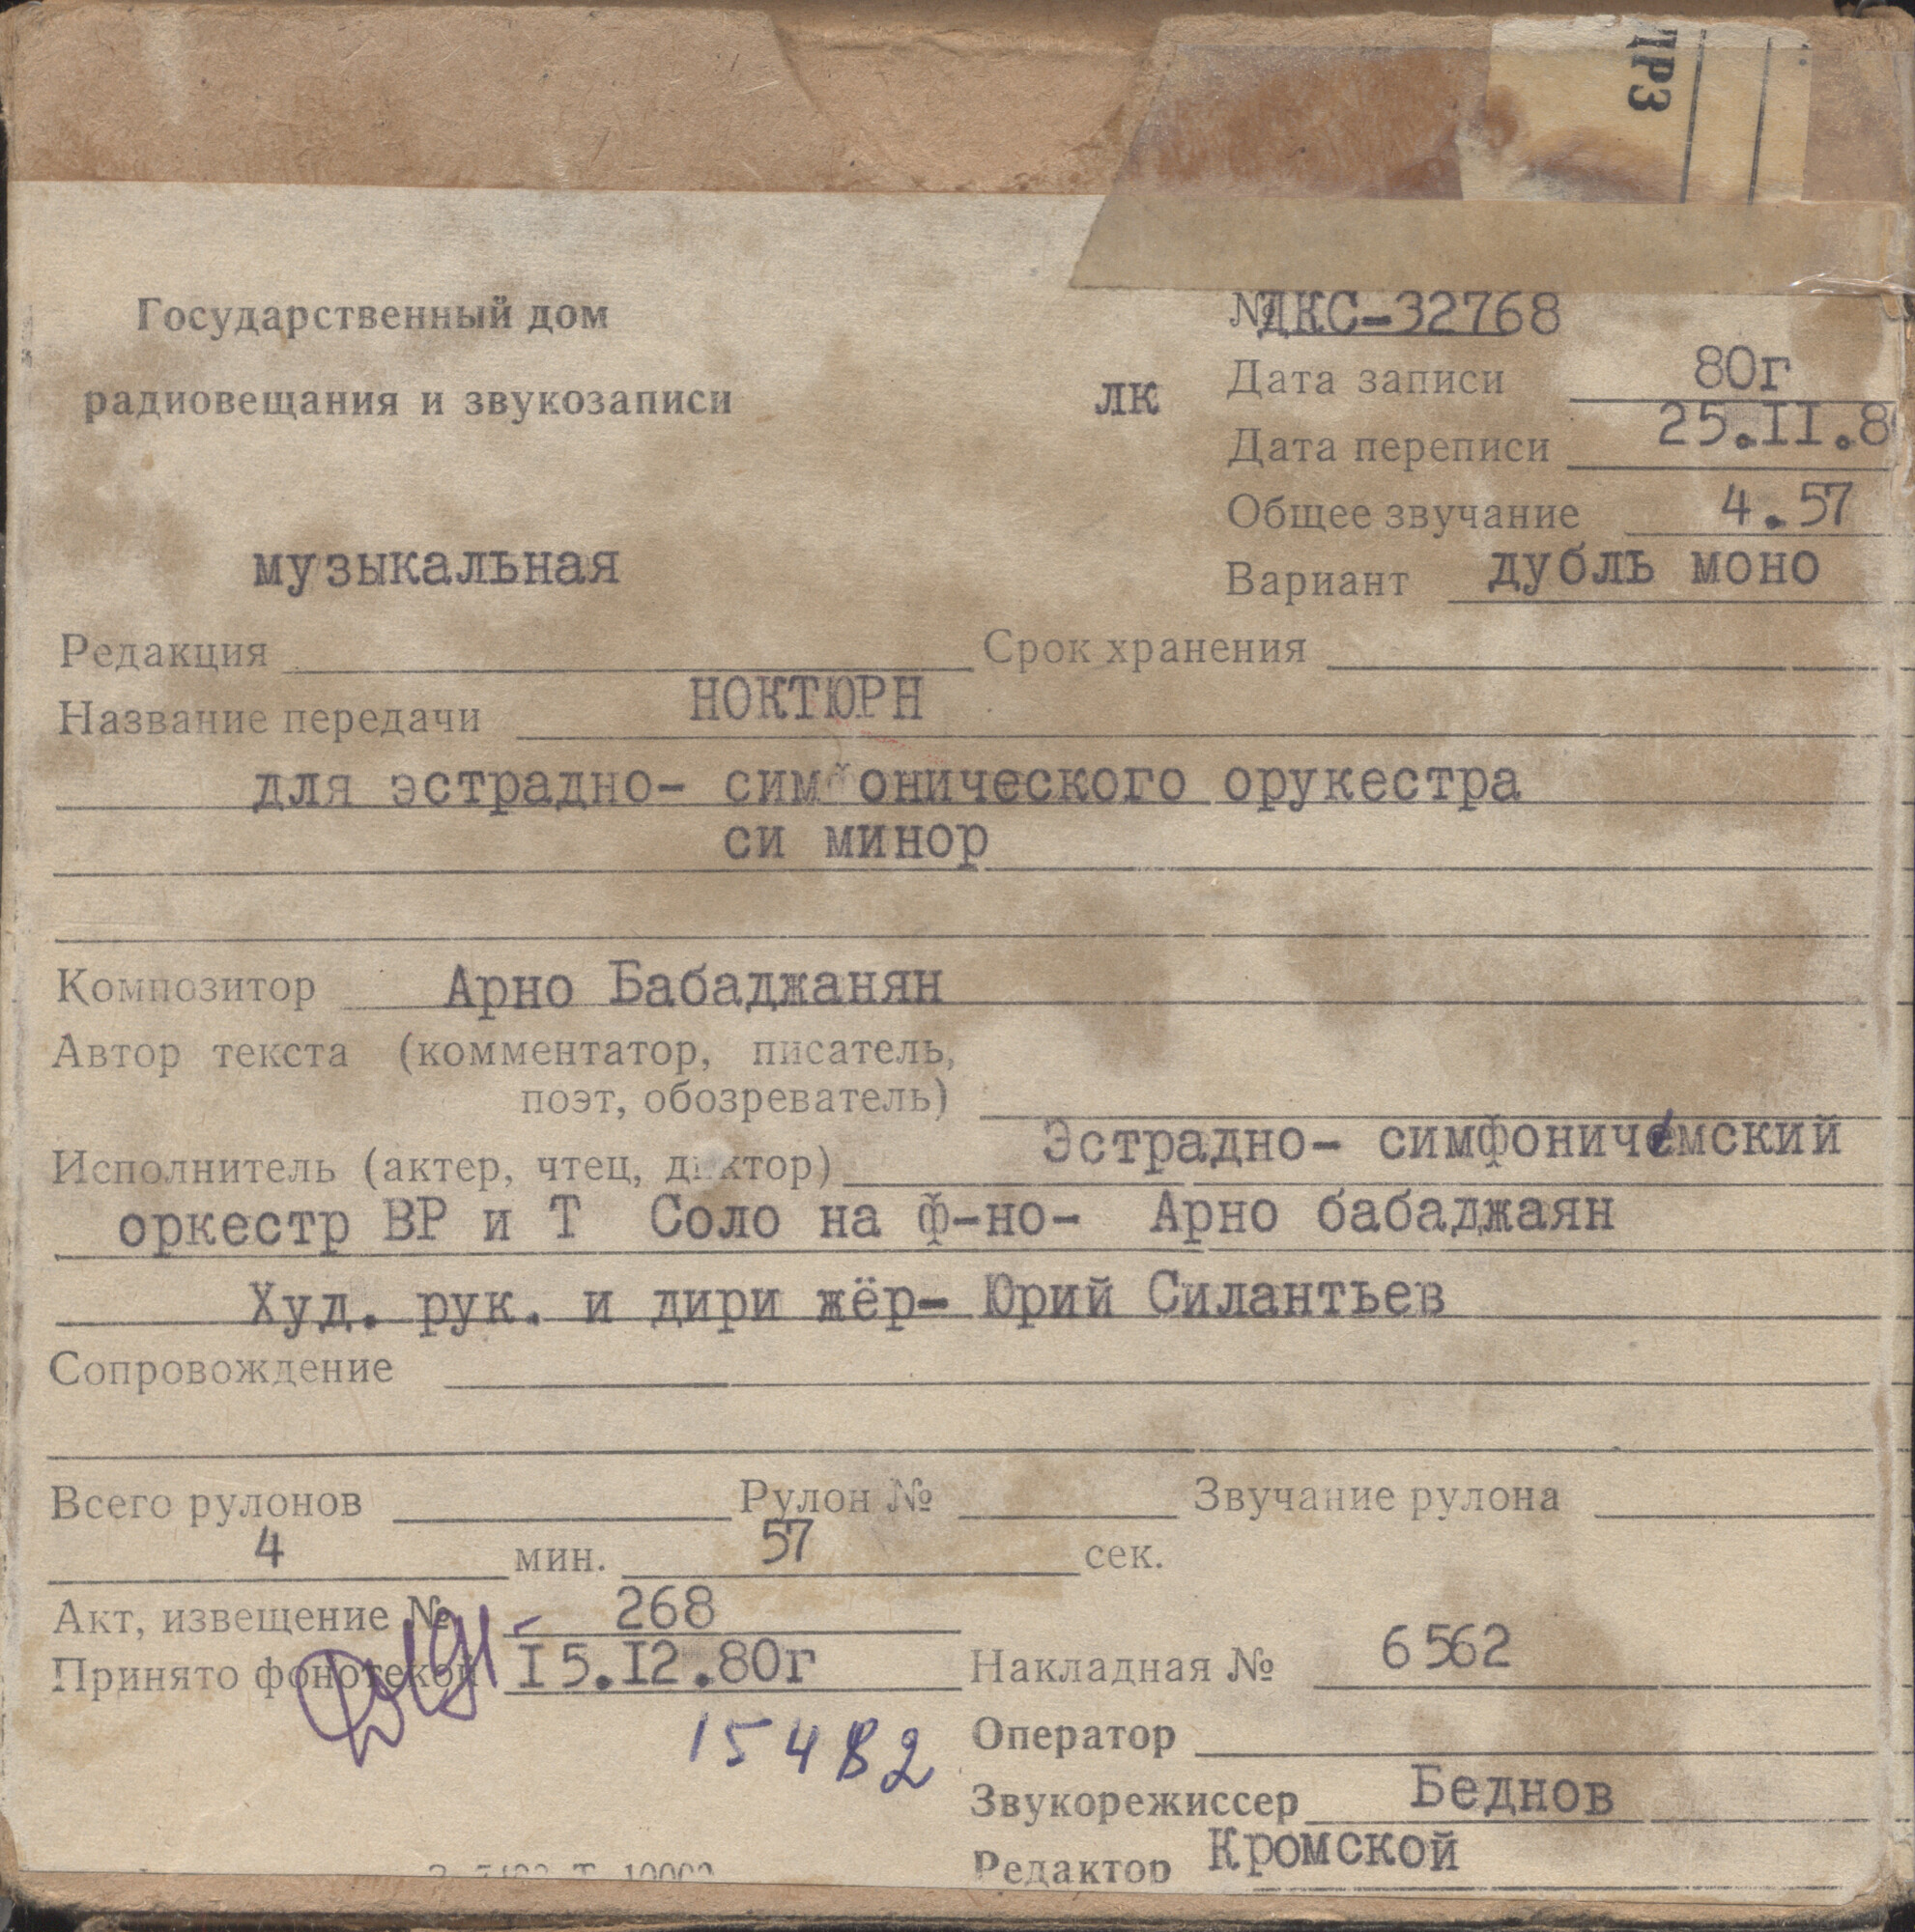 ДРЗ
Государственный дом
радиовещания и звукозаписи
лк
№ ДКС-32768
Дата записи 80г
Дата переписи 25.II.8
Общее звучание 4.57
Вариант дубль моно
музыкальная
Редакция Срок хранения
Название передачи НОКТЮРН
для эстрадно- симфонического орукестра
си минор
Композитор Арно Бабаджанян
Автор текста (комментатор, писатель,
поэт, обозреватель)
Исполнитель (актер, чтец, диктор) Эстрадно- симфоничемский
оркестр ВР и Т Соло на ф-но- Арно бабаджаян
Худ. рук. и дири жёр- Юрий Силантьев
Сопровождение
Всего рулонов Рулон № Звучание рулона
4 мин. 57 сек.
Акт, извещение № 268
Принято фонотекой I5.I2.80г Накладная № 6562
15482
Оператор
Звукорежиссер Беднов
Редактор Кромской